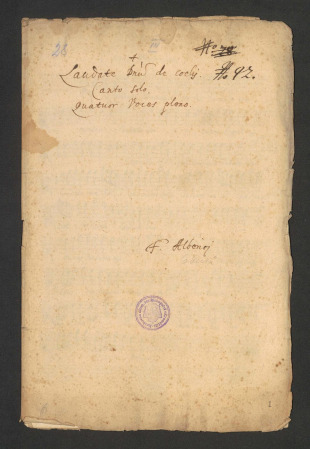 26
No 78
+
Laudate Dnū de coelis. No 92.
Canto solo.
Quatuor Voces pleno.
F. Albenoj
1